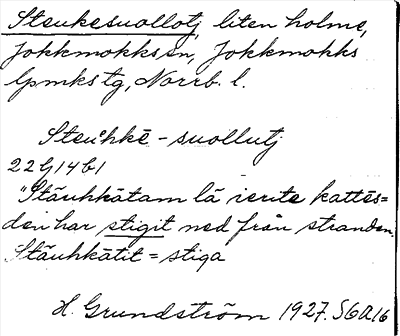 Steukesuollotj, liten holme,
Jokkmokks sn, Jokkmokks
lpmks tg, Norrb. l.
Steuhkē - suollutj
22G14b1
"Stäuhkätam lä ierite kattēs=
den har stigit ned från stranden.
Stäuhkätit = stiga
H. Grundström 1927. S6A16